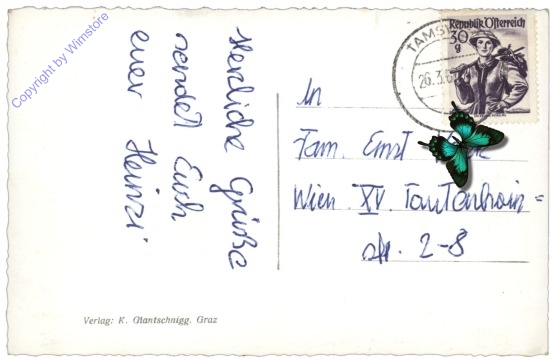 Copyright by Wimstore
Herzliche Grüße
sendet Euch
euer Heinzi
Republik Österreich
30
g
TAMS
26.3.
An
Fam. Ernst
Wien XV. Tautenhain=
str. 2-8
Verlag: K. Glantschnigg. Graz